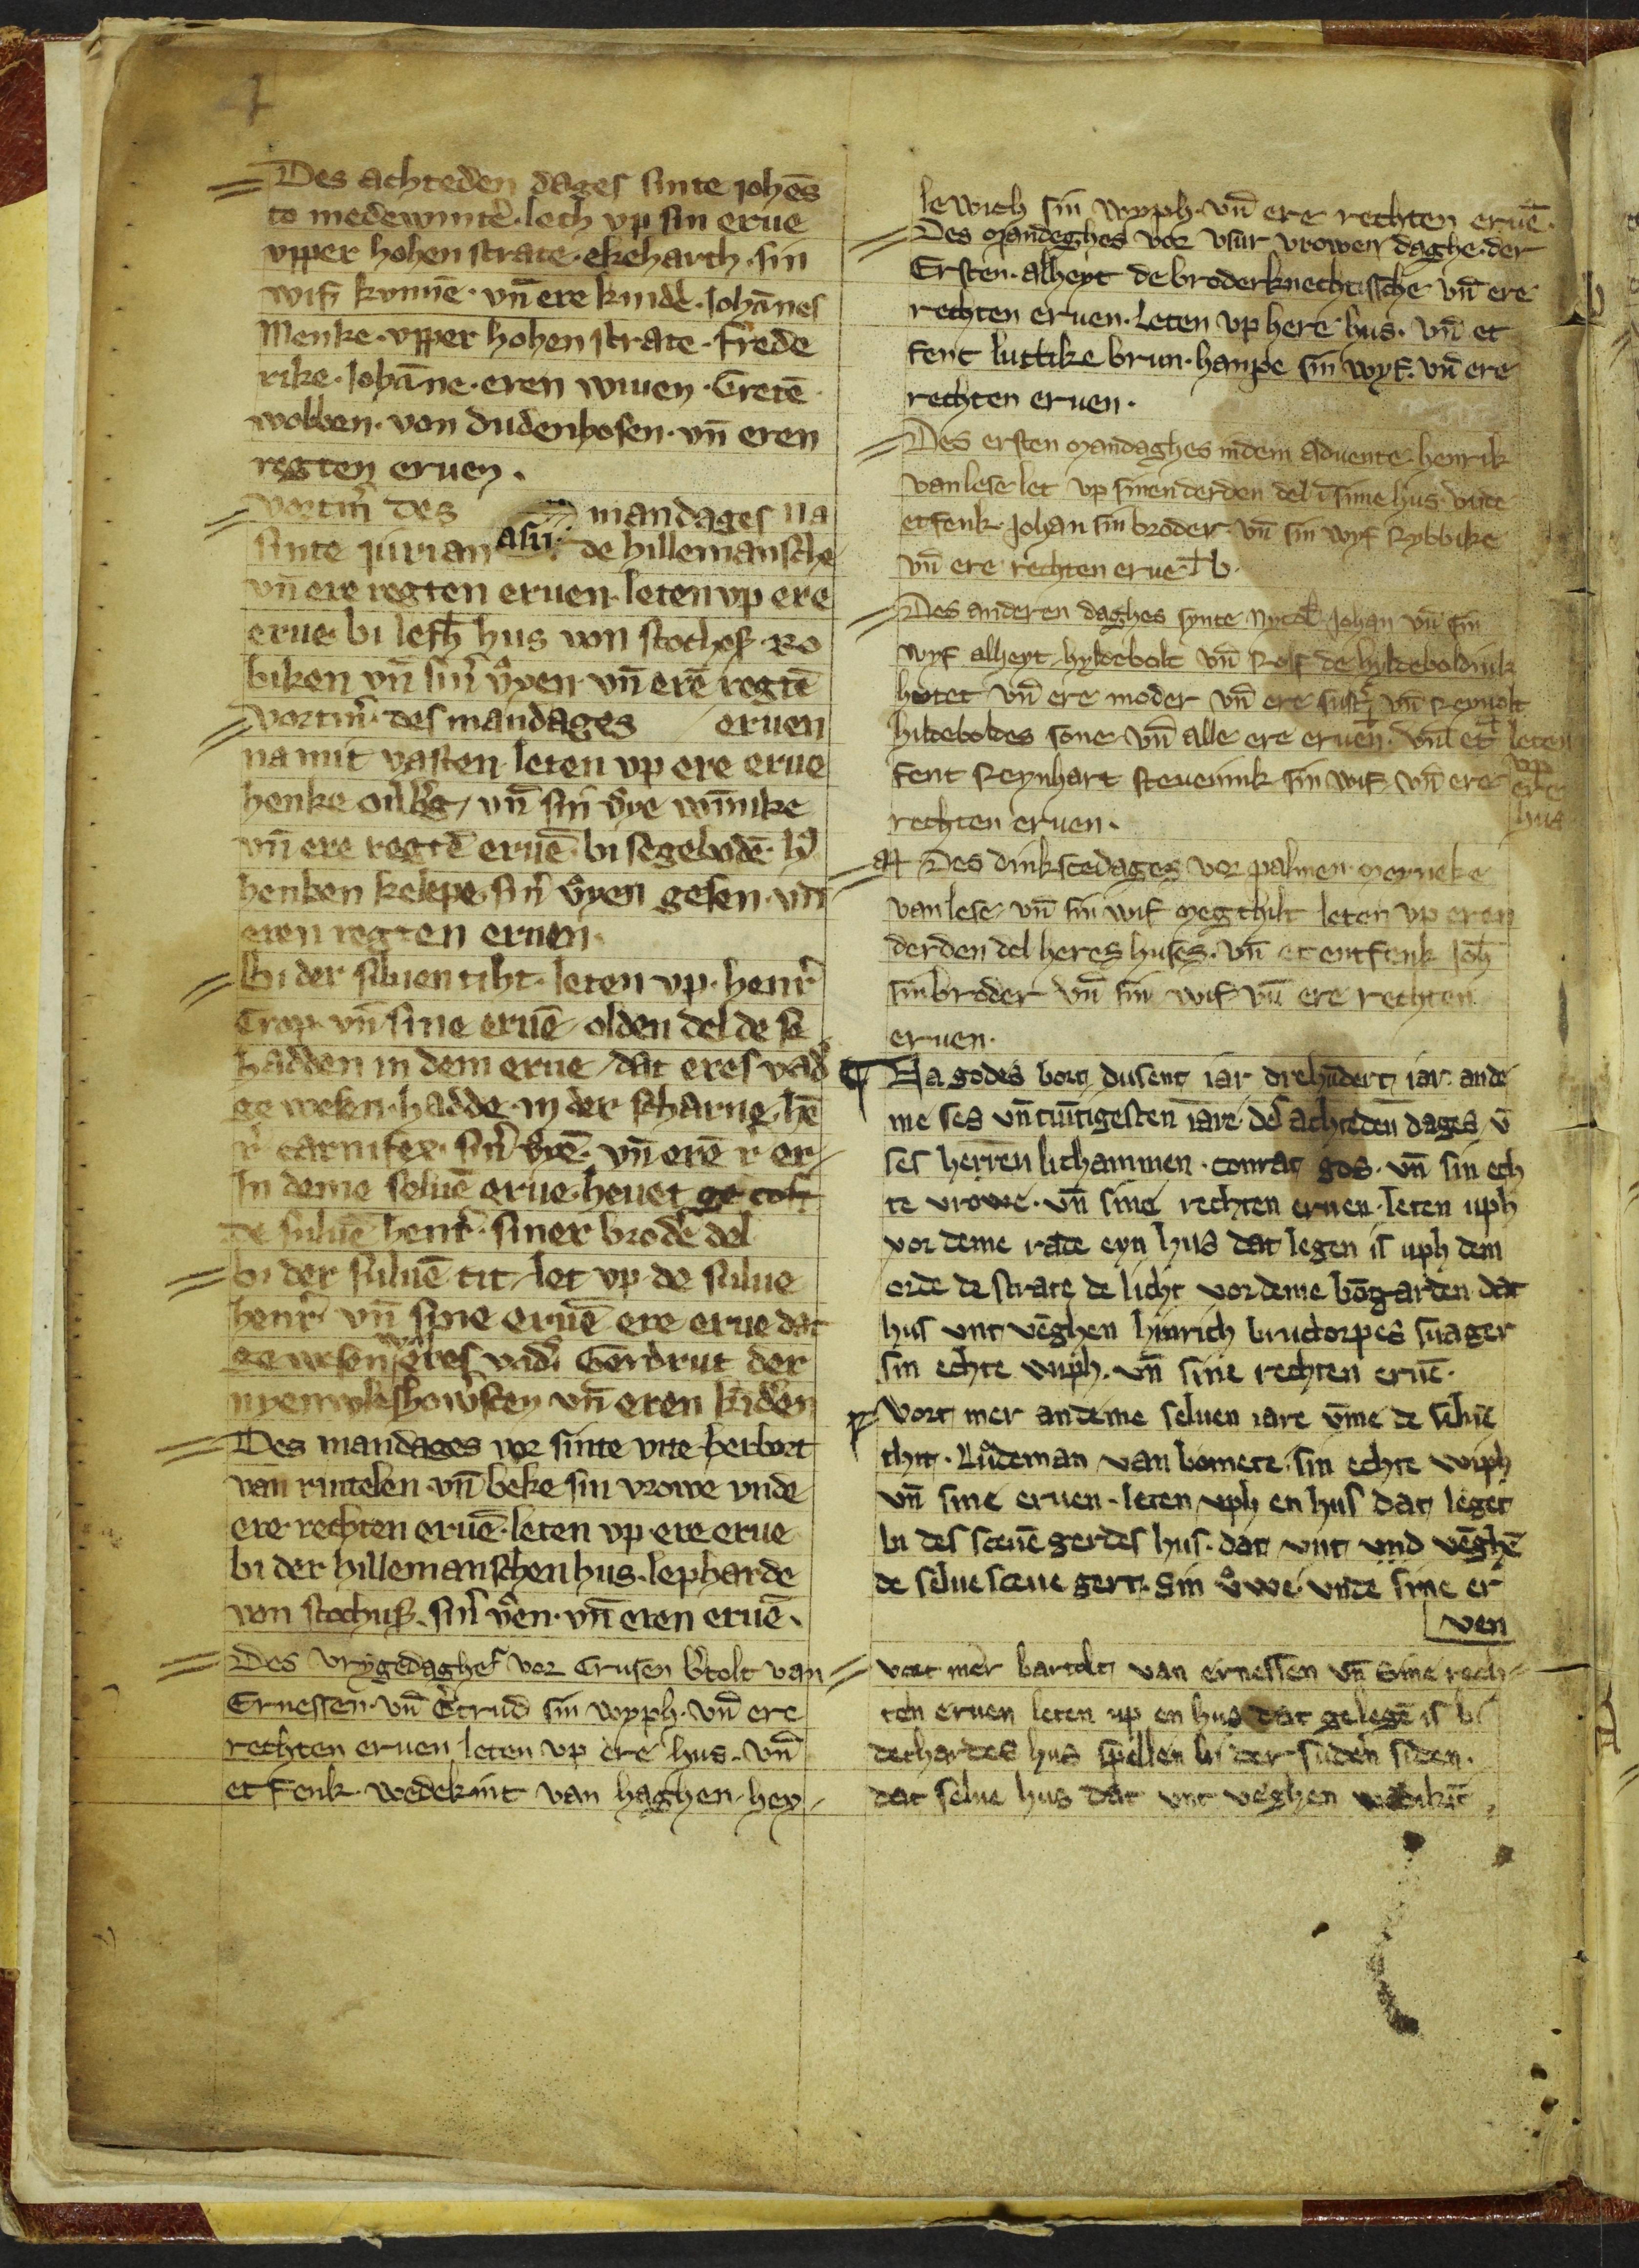 Des achteden dages sinte johēs
to medewintꝰ. lech vp sin erue
vpper hohen strate. ekeharth. sin
wif kvnnē. vn̄ ere kinde. Johānes
Menke. vpper hohen strate. frede
rike. Johāne. eren wiuen. Gretē
wobben. von dudenhosen. vn̄ eren
regten eruen.
vortmꝰ des mandages na
sinte jurian de hillemansche
vn̄ ere regten eruen. leten vp ere
erue. bi lefh hus von stochof. Ro
biken vn̄ sinꝰ vꝰyen. vn̄ erē regtē
eruen
vortmꝰ. des mandages
na mit vasten leten vp ere erue
henke vn̄ sin vꝰye winnike
vn̄ ere regtē eruē. bi segebodē. hꝰ
henken kelepe. sinꝰ vꝰyen gesen. vn̄
eren regten eruen.
Bi der siluen tiht. leten vp. henrꝰ
Crop. vn̄ sine eruē. olden del de se
hadden in dem erue dat eres vadꝰ
ge wesen. hadde. in der scharne. hē
rꝰ carnifex. sinꝰ vꝰrē. vn̄ erē rꝰ er
In deme seluē erue. heuet ge coft
de suluē henrꝰ. siner brodꝰe del
bi der suluē tit. let vp de sulue
henrꝰ vn̄ sine eruē ere erue dat
ge wesen was eres vadꝰ Gerdrut der
nyenwleshowsten vn̄ eren kīdꝰen
Des mandages vor sinte vite herbort
van rintelen. vn̄ beke sin vrowe vnde
ere. rechten eruē. leten vp. ere erue
bi der hillemanschen hus. lepharde
von stochus. sinꝰ vꝰen. vn̄ eren eruē.
Des vrygedaghes vor Crusen bꝰtolt van
Ernessen. vn̄ Gꝰtrud sin wyph. vn̄ ere
rechten eruen leten vp ere hus. vn̄
et fenk. wedekint van haghen. hey
le wich sin wyph. vn̄ ere rechten eruē.
Des Mandeghes vor vsur vrowen daghe. der
Ersten. alheyt de broderknechtissche vn̄ ere
rechten eruen. leten vp here hus. vn̄ et
fent luttike brun. hanpe sin wyf. vn̄ ere
rechten eruen.
Des ersten Mandaghes indem aduente. henrik
van lese let vp sinen derden del ī sime hus. vnte
etfenk. Johan sin broder. vn̄ sin wyf Rybbike
vn̄ ere rechten erue
Des anderen daghes synte Nycol. Johan vn̄ sin
wyf alheyt hyldebolt vn̄ Rolf de hyldeboldink
hetet vn̄ ere moder vn̄ ere sustꝰ vn̄ Reynolt
hildeboldes sone. vn̄ alle ere eruen. vn̄ et leten
vp
ere
hus
fent Reynhart steuenink sin wif. vn̄ ere
rechten eruen.
Des dinkstedages vor palmen. Merneke
van lese. vn̄ sin wif Megthilt leten vp eren
derden del heres huses. vn̄ et entfenk Joh
sin broder vn̄ sin wif vn̄ ere rechten
eruen.
Na godes bort dusent iar drehūdert iar. ande
me ses vn̄ twītigesten iare. des achteden dages. v̄
ses herren lichammen. conrat gos. vn̄ sin ech
te vrowe. vn̄ sine rechten eruen. leten uph
vor deme rade eyn hus dat legen is uph dem
orde de strate de licht vor deme bōgarden. dat
hus vnt vēghen hinrich bructorpes suager
sin echte wiph. vn̄ sine rechten eruē.
Vort mer andeme seluen iare v̄me de seluē
thit. Ludeman van bomete. sin echte wiph
vn̄ sine eruen. leten uph en hus dat leget
bi des sceuē gerdes hus. dat vnt vnd vēghē
de selue sceue gert. Sin vꝰwe vnte sine er
ven
vort mer bartolt van ernessen vn̄ sine rech
ten eruen leten up en hus dat gelegē is bi
dethardes hus spellen bi der suden siden.
dat selue hus dat vnt veghen wedikīt